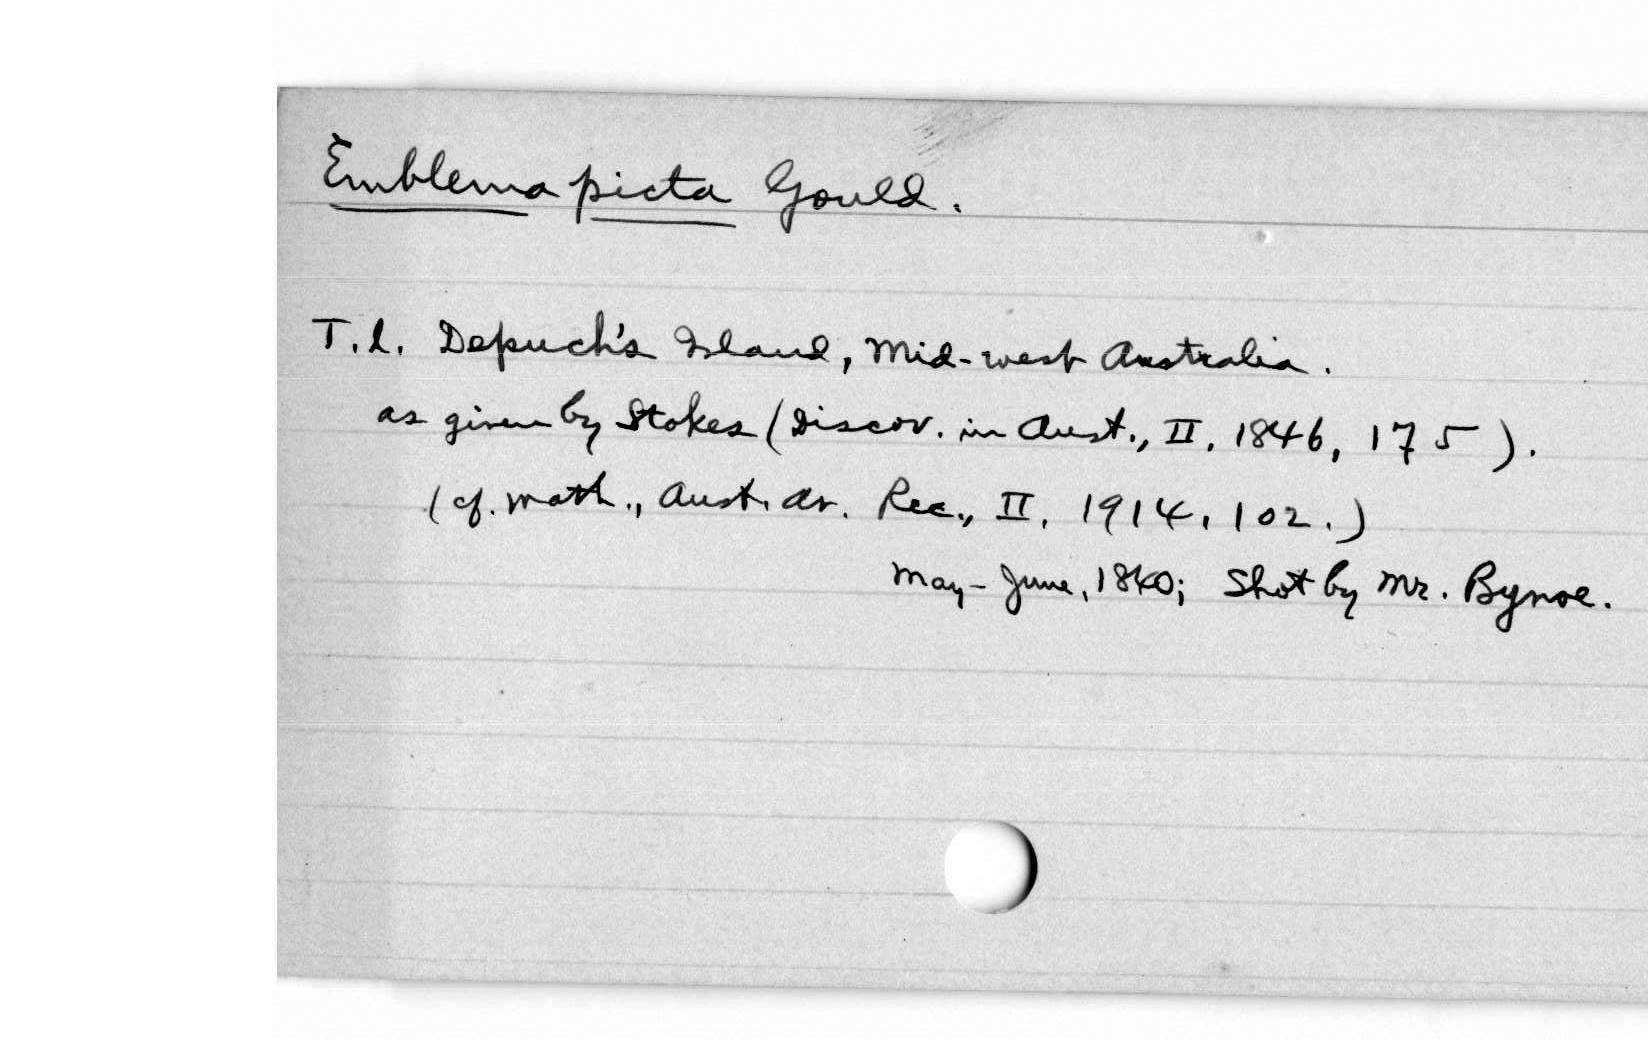 Emblema picta Gould.
T.l. Depuch's Island, Mid-west Australia.
as given by Stokes (Discov. in Aust., II, 1846, 175).
(cf. Math., Aust. Av. Rec., II, 1914, 102.)
May-June, 1840; Shot by Mr. Bynoe.